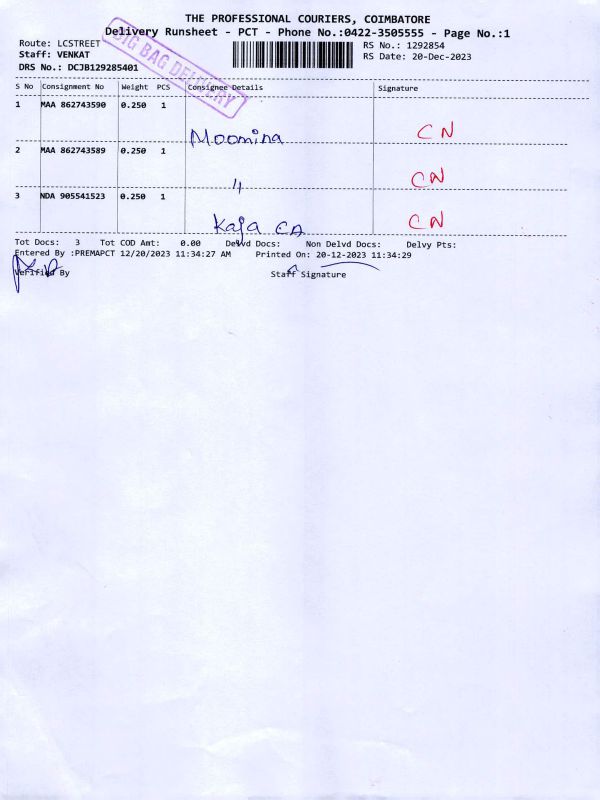 THE PROFESSIONAL COURIERS, COIMBATORE
Delivery Runsheet - PCT - Phone No.:0422-3505555 - Page No.:1
Route: LCSTREET
RS No.: 1292854
Staff: VENKAT
RS Date: 20-Dec-2023
DRS No.: DCJB129285401
BIG BAG DELIVERY
S No Consignment No Weight PCS Consignee Details Signature
1 MAA 862743590 0.250 1
Moomina CN
2 MAA 862743589 0.250 1
〃 CN
3 NDA 905541523 0.250 1
Kaja CN
Tot Docs: 3 Tot COD Amt: 0.00 Delvd Docs: Non Delvd Docs: Delvy Pts:
Entered By :PREMAPCT 12/20/2023 11:34:27 AM Printed On: 20-12-2023 11:34:29
Verified By Staff Signature